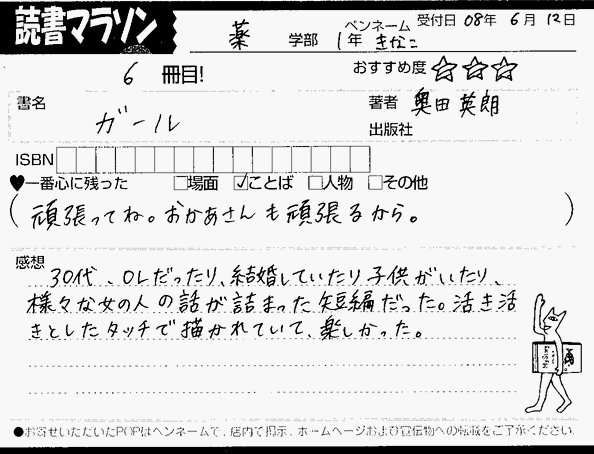 読書マラソン
薬 学部 1年 ペンネーム きなこ 受付日 08年 6月 12日
6 冊目! おすすめ度 ☆☆☆
書名 ガール 著者 奥田英朗
出版社
ISBN
♥一番心に残った □場面 ☑ことば □人物 □その他
(頑張ってね。おかあさんも頑張るから。)
感想
30代、OLだったり、結婚していたり子供がいたり、
様々な女の人の話が詰まった短編だった。活き活
きとしたタッチで描かれていて、楽しかった。
●お寄せいただいたPOPはペンネームで、店内で掲示、ホームページおよび宣伝物への転載をご了承ください。